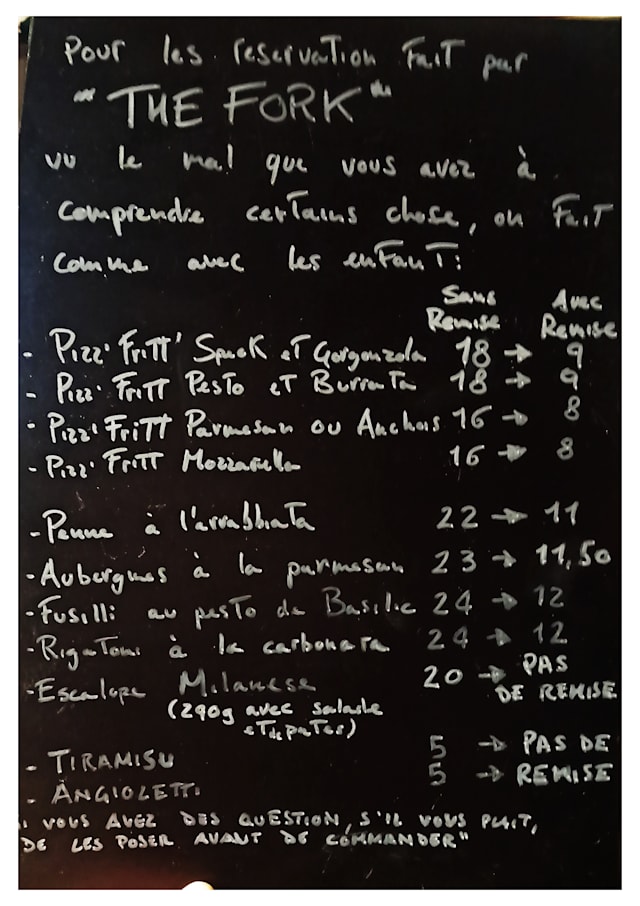 Pour les reservation Fait par
"THE FORK"
vu le mal que vous avez à
comprendre certains chose, on Fait
comme avec les enFanT:
Sans Remise Avec Remise
- Pizz' FriTT' Speck eT Gorgonzola 18 → 9
- Pizz' FriTT Pesto eT BurraTa 18 → 9
- Pizz' FriTT Parmesan ou Anchois 16 → 8
- Pizz' FriTT Mozzarella 16 → 8
- Penne à l'arrabbiaTa 22 → 11
- Aubergines à la parmesan 23 → 11,50
- Fusilli au pesto de Basilic 24 → 12
- RigaToni à la carbonara 24 → 12
- Escalope Milanese 20 → PAS DE REMISE
(290g avec salade
eT de paTes)
- TIRAMISU 5 → PAS DE
- ANGIOLETTI 5 → REMISE
I VOUS AVEZ DES QUESTION, S'IL VOUS PLAIT,
DE LES POSER AVANT DE COMMANDER"